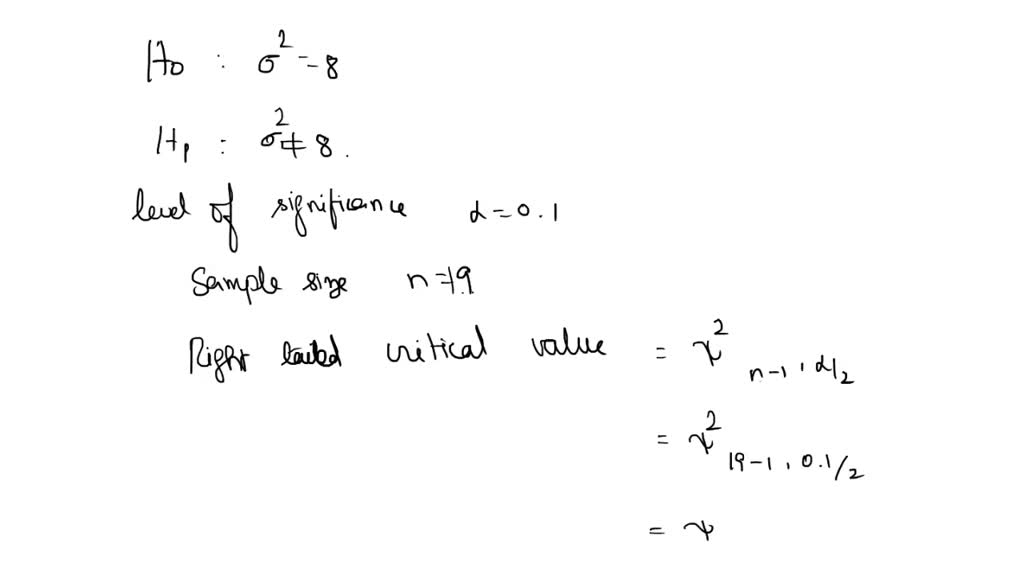 H₀ : σ² = 8
H₁ : σ² ≠ 8.
level of significance α = 0.1
Sample size n = 19
Right tailed critical value = χ² n-1, α/2
= χ² 19-1, 0.1/2
= χ